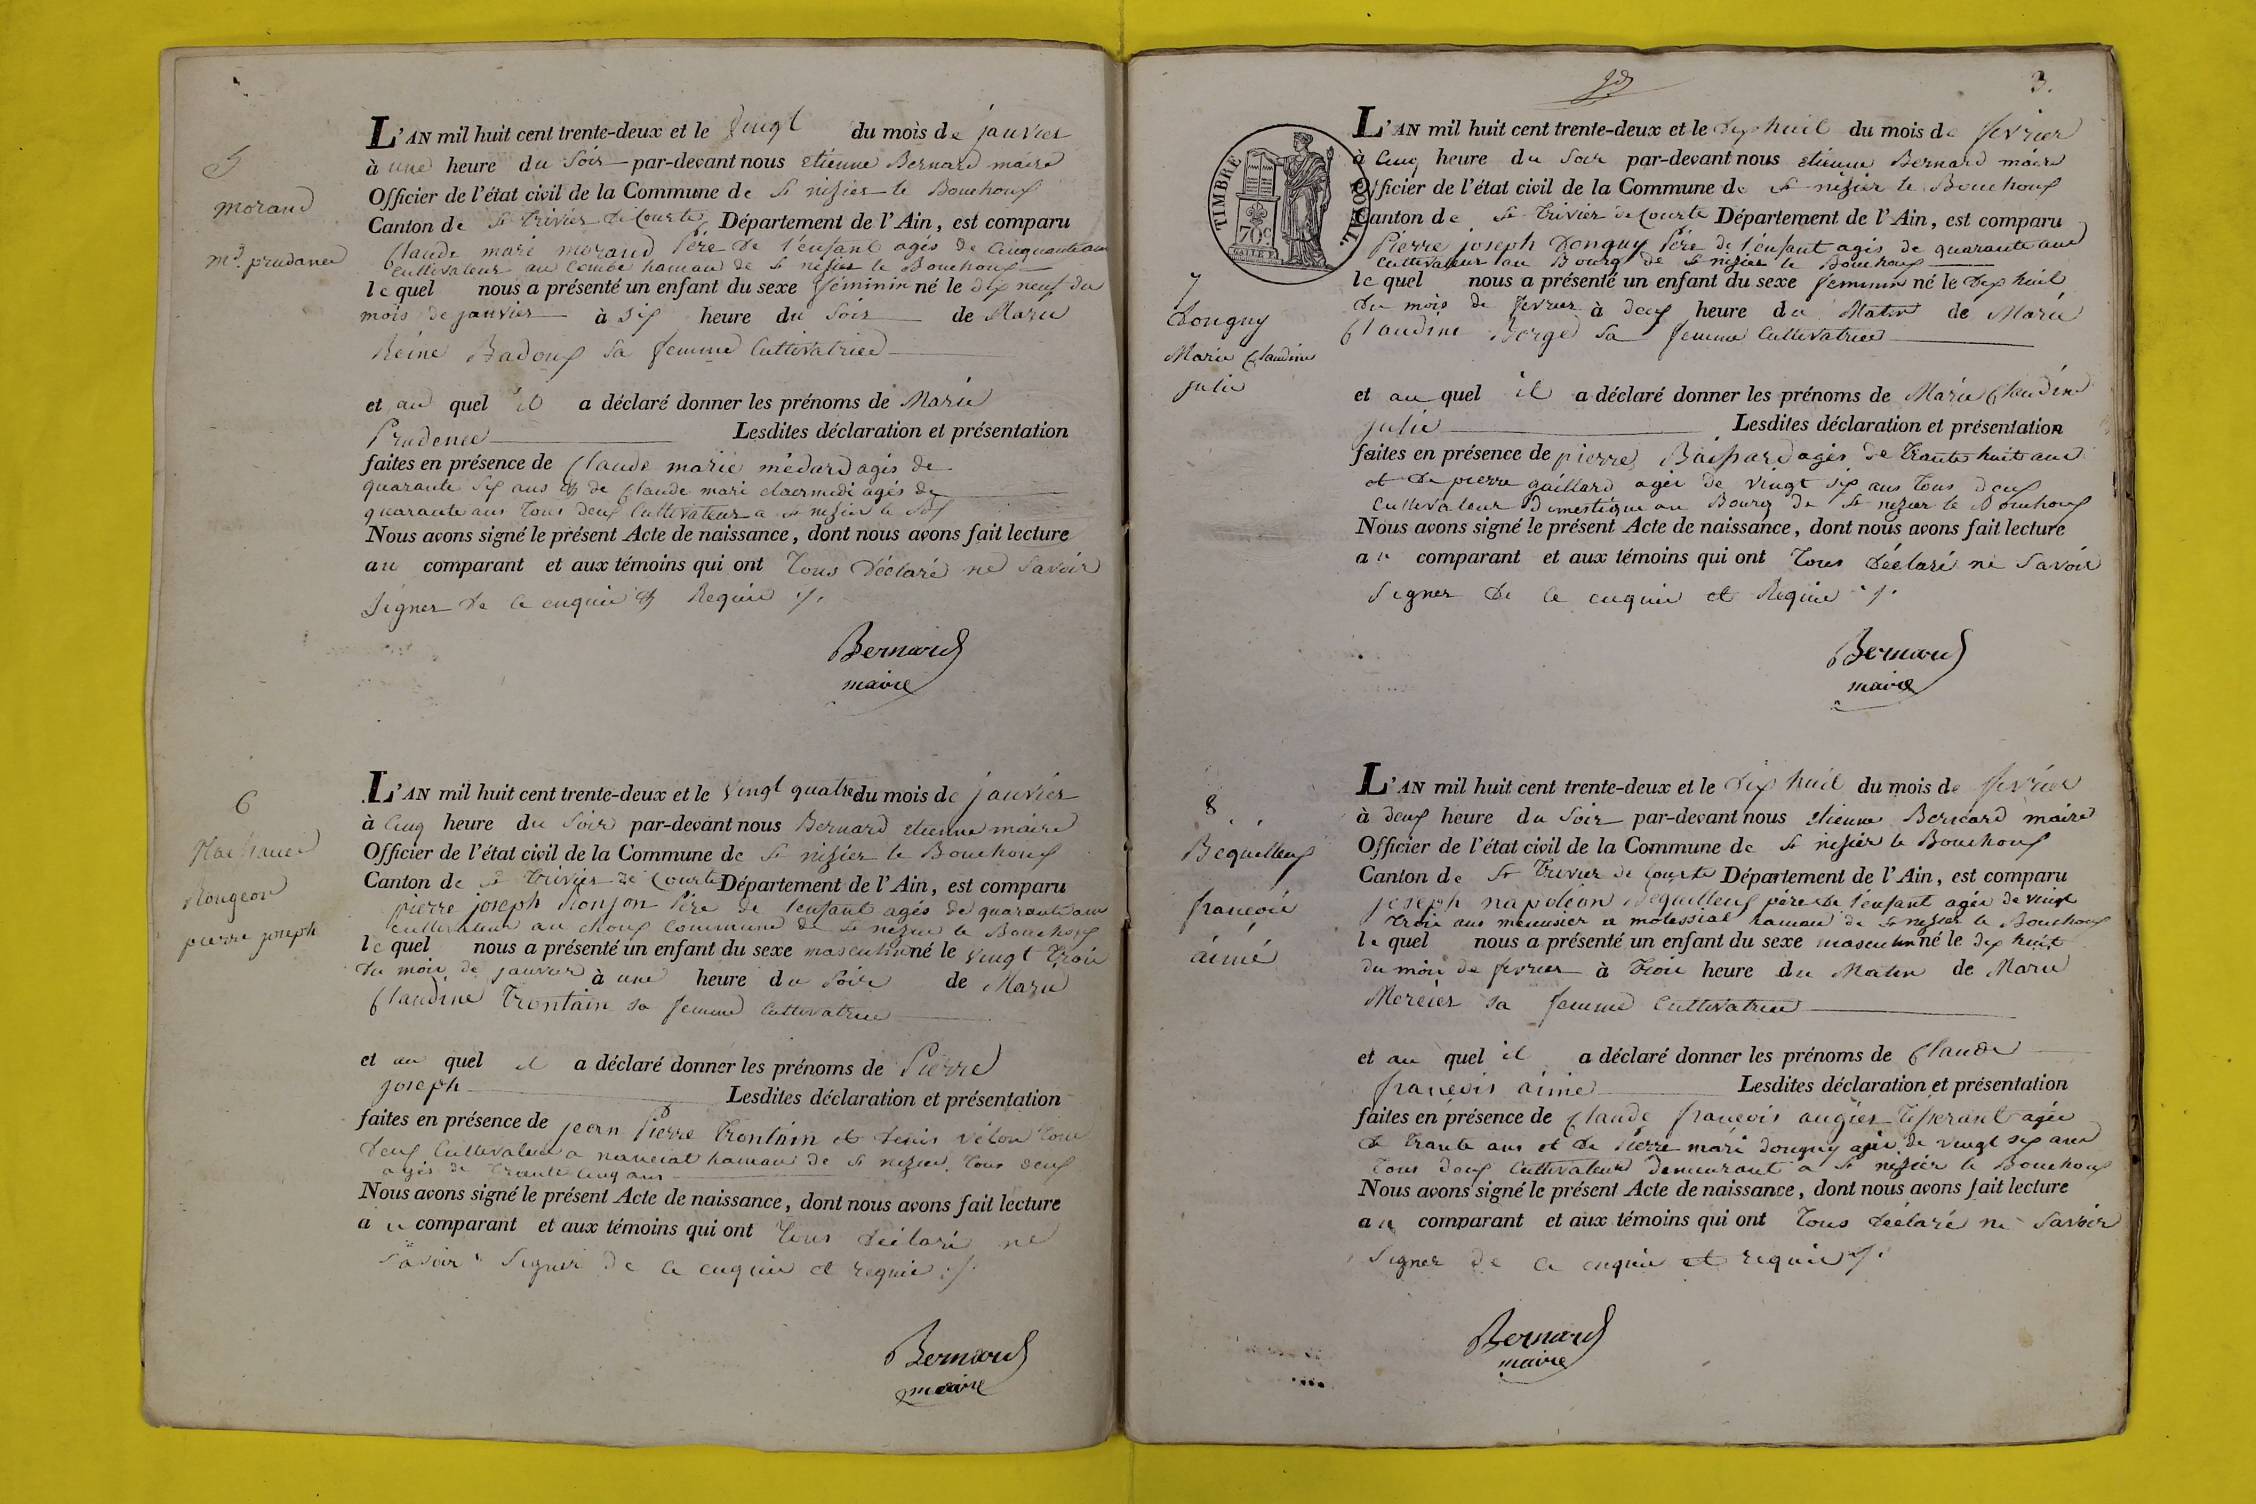 5
morand
md. prudance
L'AN mil huit cent trente-deux et le vingt du mois de janvier
à une heure du soir par-devant nous etienne Bernard maire
Officier de l'état civil de la Commune de St nisier le Bouchoux
Canton de St trivier de Courte Département de l'Ain, est comparu
Claude marie morand Père de l'enfant agés de Cinquante ans
Cultivateur au Combe hamau de St nisier le Bouchoux
le quel nous a présenté un enfant du sexe féminin né le dix neuf du
mois de janvier à six heure du soir de Marie
Reine Badoux sa femme Cultivatrice
et au quel il a déclaré donner les prénoms de Marie
Prudence Lesdites déclaration et présentation
faites en présence de Claude marie médard agés de
quarante six ans et de Claude marie agés de
quarante ans tous deux Cultivateur a St nisier le
Nous avons signé le présent Acte de naissance, dont nous avons fait lecture
au comparant et aux témoins qui ont tous déclaré ne savoir
signer de ce enquie et Requie ./.
Bernard
maire
6
Rongeon
pierre joseph
L'AN mil huit cent trente-deux et le vingt quatre du mois de janvier
à cinq heure du soir par-devant nous Bernard etienne maire
Officier de l'état civil de la Commune de St nisier le Bouchoux
Canton de St trivier de Courte Département de l'Ain, est comparu
pierre joseph Père de l'enfant agés de quarante ans
cultivateur au choux Commune de St nisier le Bouchoux
le quel nous a présenté un enfant du sexe masculin né le vingt trois
du mois de janvier à une heure du soir de Marie
Claudine trontain sa femme Cultivatrice
et au quel il a déclaré donner les prénoms de Pierre
joseph Lesdites déclaration et présentation
faites en présence de jean Pierre trontain et denis vélon tous
deux Cultivateur a hamau de St nisier tous deux
agés de trante cinq ans
Nous avons signé le présent Acte de naissance, dont nous avons fait lecture
au comparant et aux témoins qui ont tous déclaré ne
savoir signer de ce enquie et requie ./.
Bernard
maire
3.
TIMBRE ROYAL.
70c
7
Donguy
Marie Claudine
julie
L'AN mil huit cent trente-deux et le dix huit du mois de fevrier
à cinq heure du soir par-devant nous etienne Bernard maire
Officier de l'état civil de la Commune de St nisier le Bouchoux
Canton de St trivier de Courte Département de l'Ain, est comparu
Pierre joseph Donguy Père de l'enfant agés de quarante ans
Cultivateur au Bourg de St nisier le Bouchoux
le quel nous a présenté un enfant du sexe feminin né le dix huit
du mois de fevrier à deux heure du Matin de Marie
Claudine Borge sa femme Cultivatrice
et au quel il a déclaré donner les prénoms de Marie Claudine
julie Lesdites déclaration et présentation
faites en présence de pierre agés de trante huit ans
et de pierre gaillard agés de vingt six ans tous deux
cultivateur Domestique au Bourg de St nisier le Bouchoux
Nous avons signé le présent Acte de naissance, dont nous avons fait lecture
au comparant et aux témoins qui ont tous déclaré ne savoir
signer de ce enquie et Requie ./.
Bernard
maire
8
Bequilleux
françois
aimé
L'AN mil huit cent trente-deux et le dix huit du mois de fevrier
à deux heure du soir par-devant nous etienne Bernard maire
Officier de l'état civil de la Commune de St nisier le Bouchoux
Canton de St trivier de Courte Département de l'Ain, est comparu
joseph napoléon Bequilleux père de l'enfant agée de vingt
trois ans menusier a molassiat hamau de St nisier le Bouchoux
le quel nous a présenté un enfant du sexe masculin né le dix huit
du mois de fevrier à trois heure du Matin de Marie
Mercier sa femme Cultivatrice
et au quel il a déclaré donner les prénoms de Claude
françois aimé Lesdites déclaration et présentation
faites en présence de Claude françois augier tisserant agée
de trante ans et de Pierre marie donguy agée de vingt six ans
tous deux Cultivateur demeurant a St nisier le Bouchoux
Nous avons signé le présent Acte de naissance, dont nous avons fait lecture
au comparant et aux témoins qui ont tous déclaré ne savoir
signer de ce enquie et requie ./.
Bernard
maire